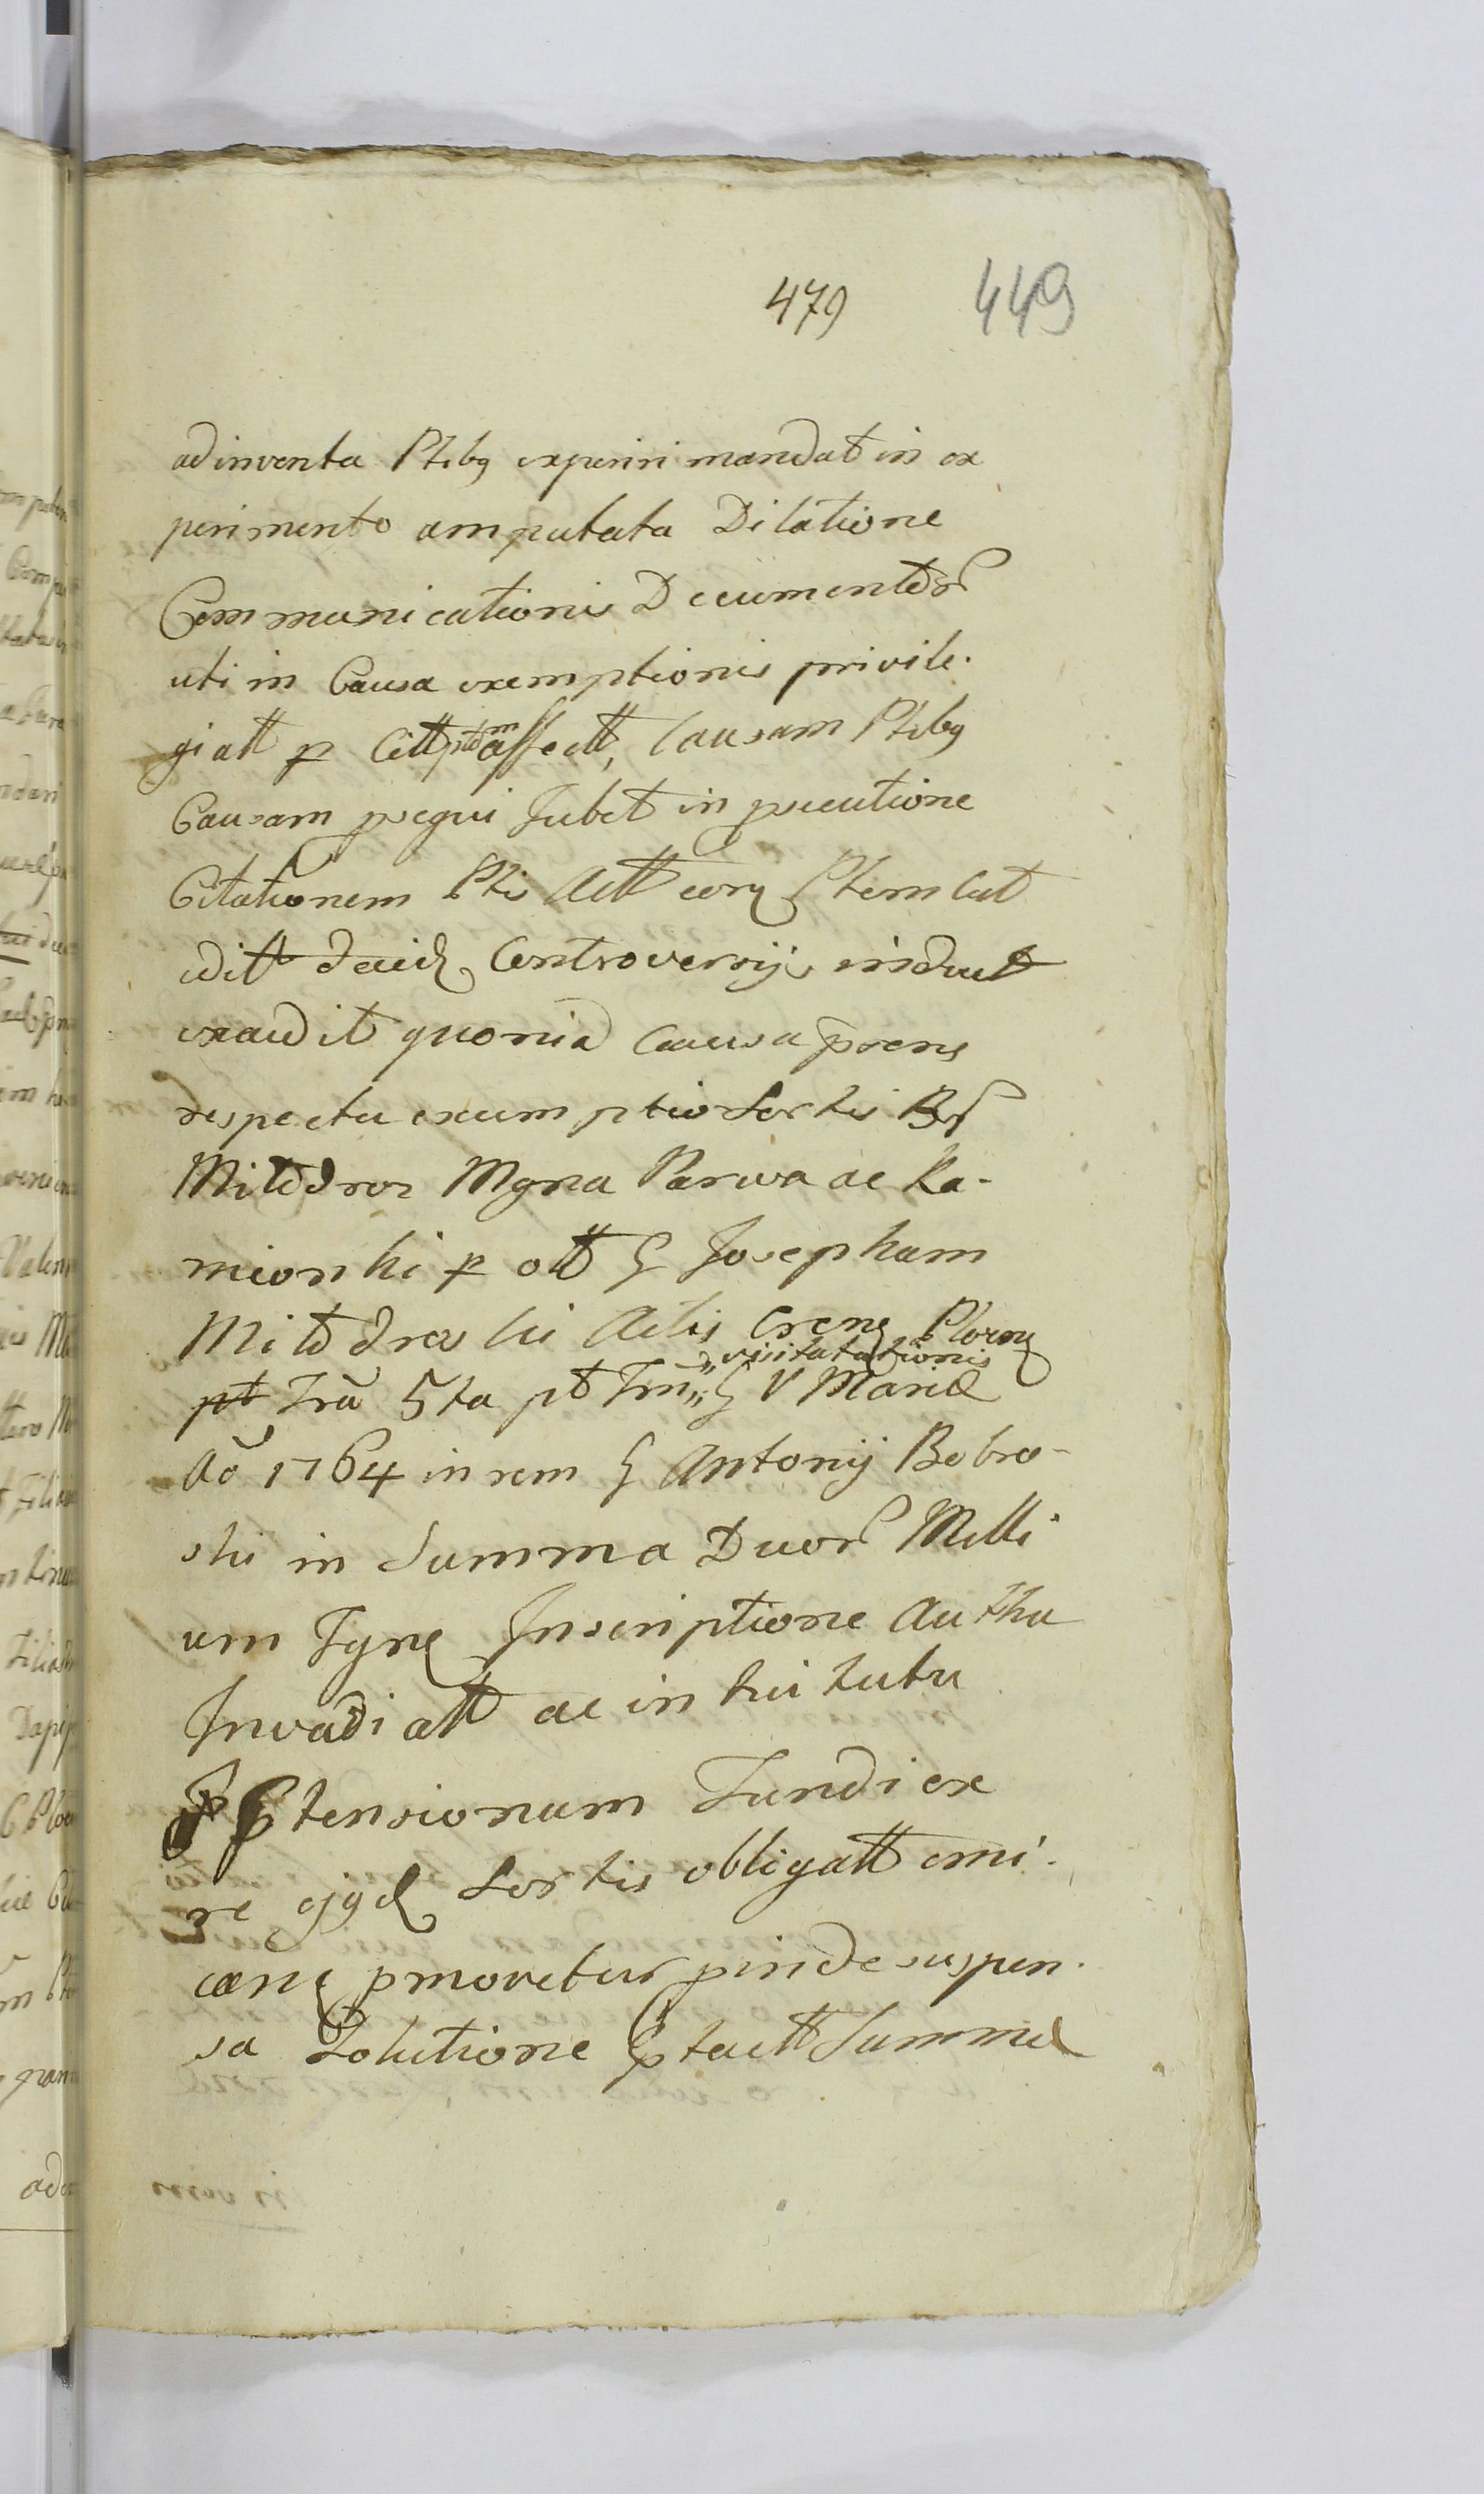 479 449
adinventa Ptibg experiri mandat in ex
perimento amputata Dilatione
Communicationis Documentor
uti in Causa exemptionis privile.
giatt p Citt affectt, Causam Ptibg
Causam psequi Jubet in psecutione
Citationem Ptis Actt eorq Ptem Cit
editt decid Controversijs induct
exaudit quonia Causa prens
respectu exemptio Sortis Br
Mitodror Mgna Parva ac Ka-
mionki p ott G Josepham
Mitodrowski Actis Crens Plocens
pt Fra 5ta pt Fm G visitatationis V Mariæ
Aō 1764 in rem G Antonij Bobro-
ski in Summa Duor Milli
um Fgne Inscriptione Authu
Invadiatt ac intuitutu
Ptensionum Fundi ex
re ejqd Sortis obligatt emi.
cans pmovetur pinde suspen.
sa Solutione Ptactt Summæ